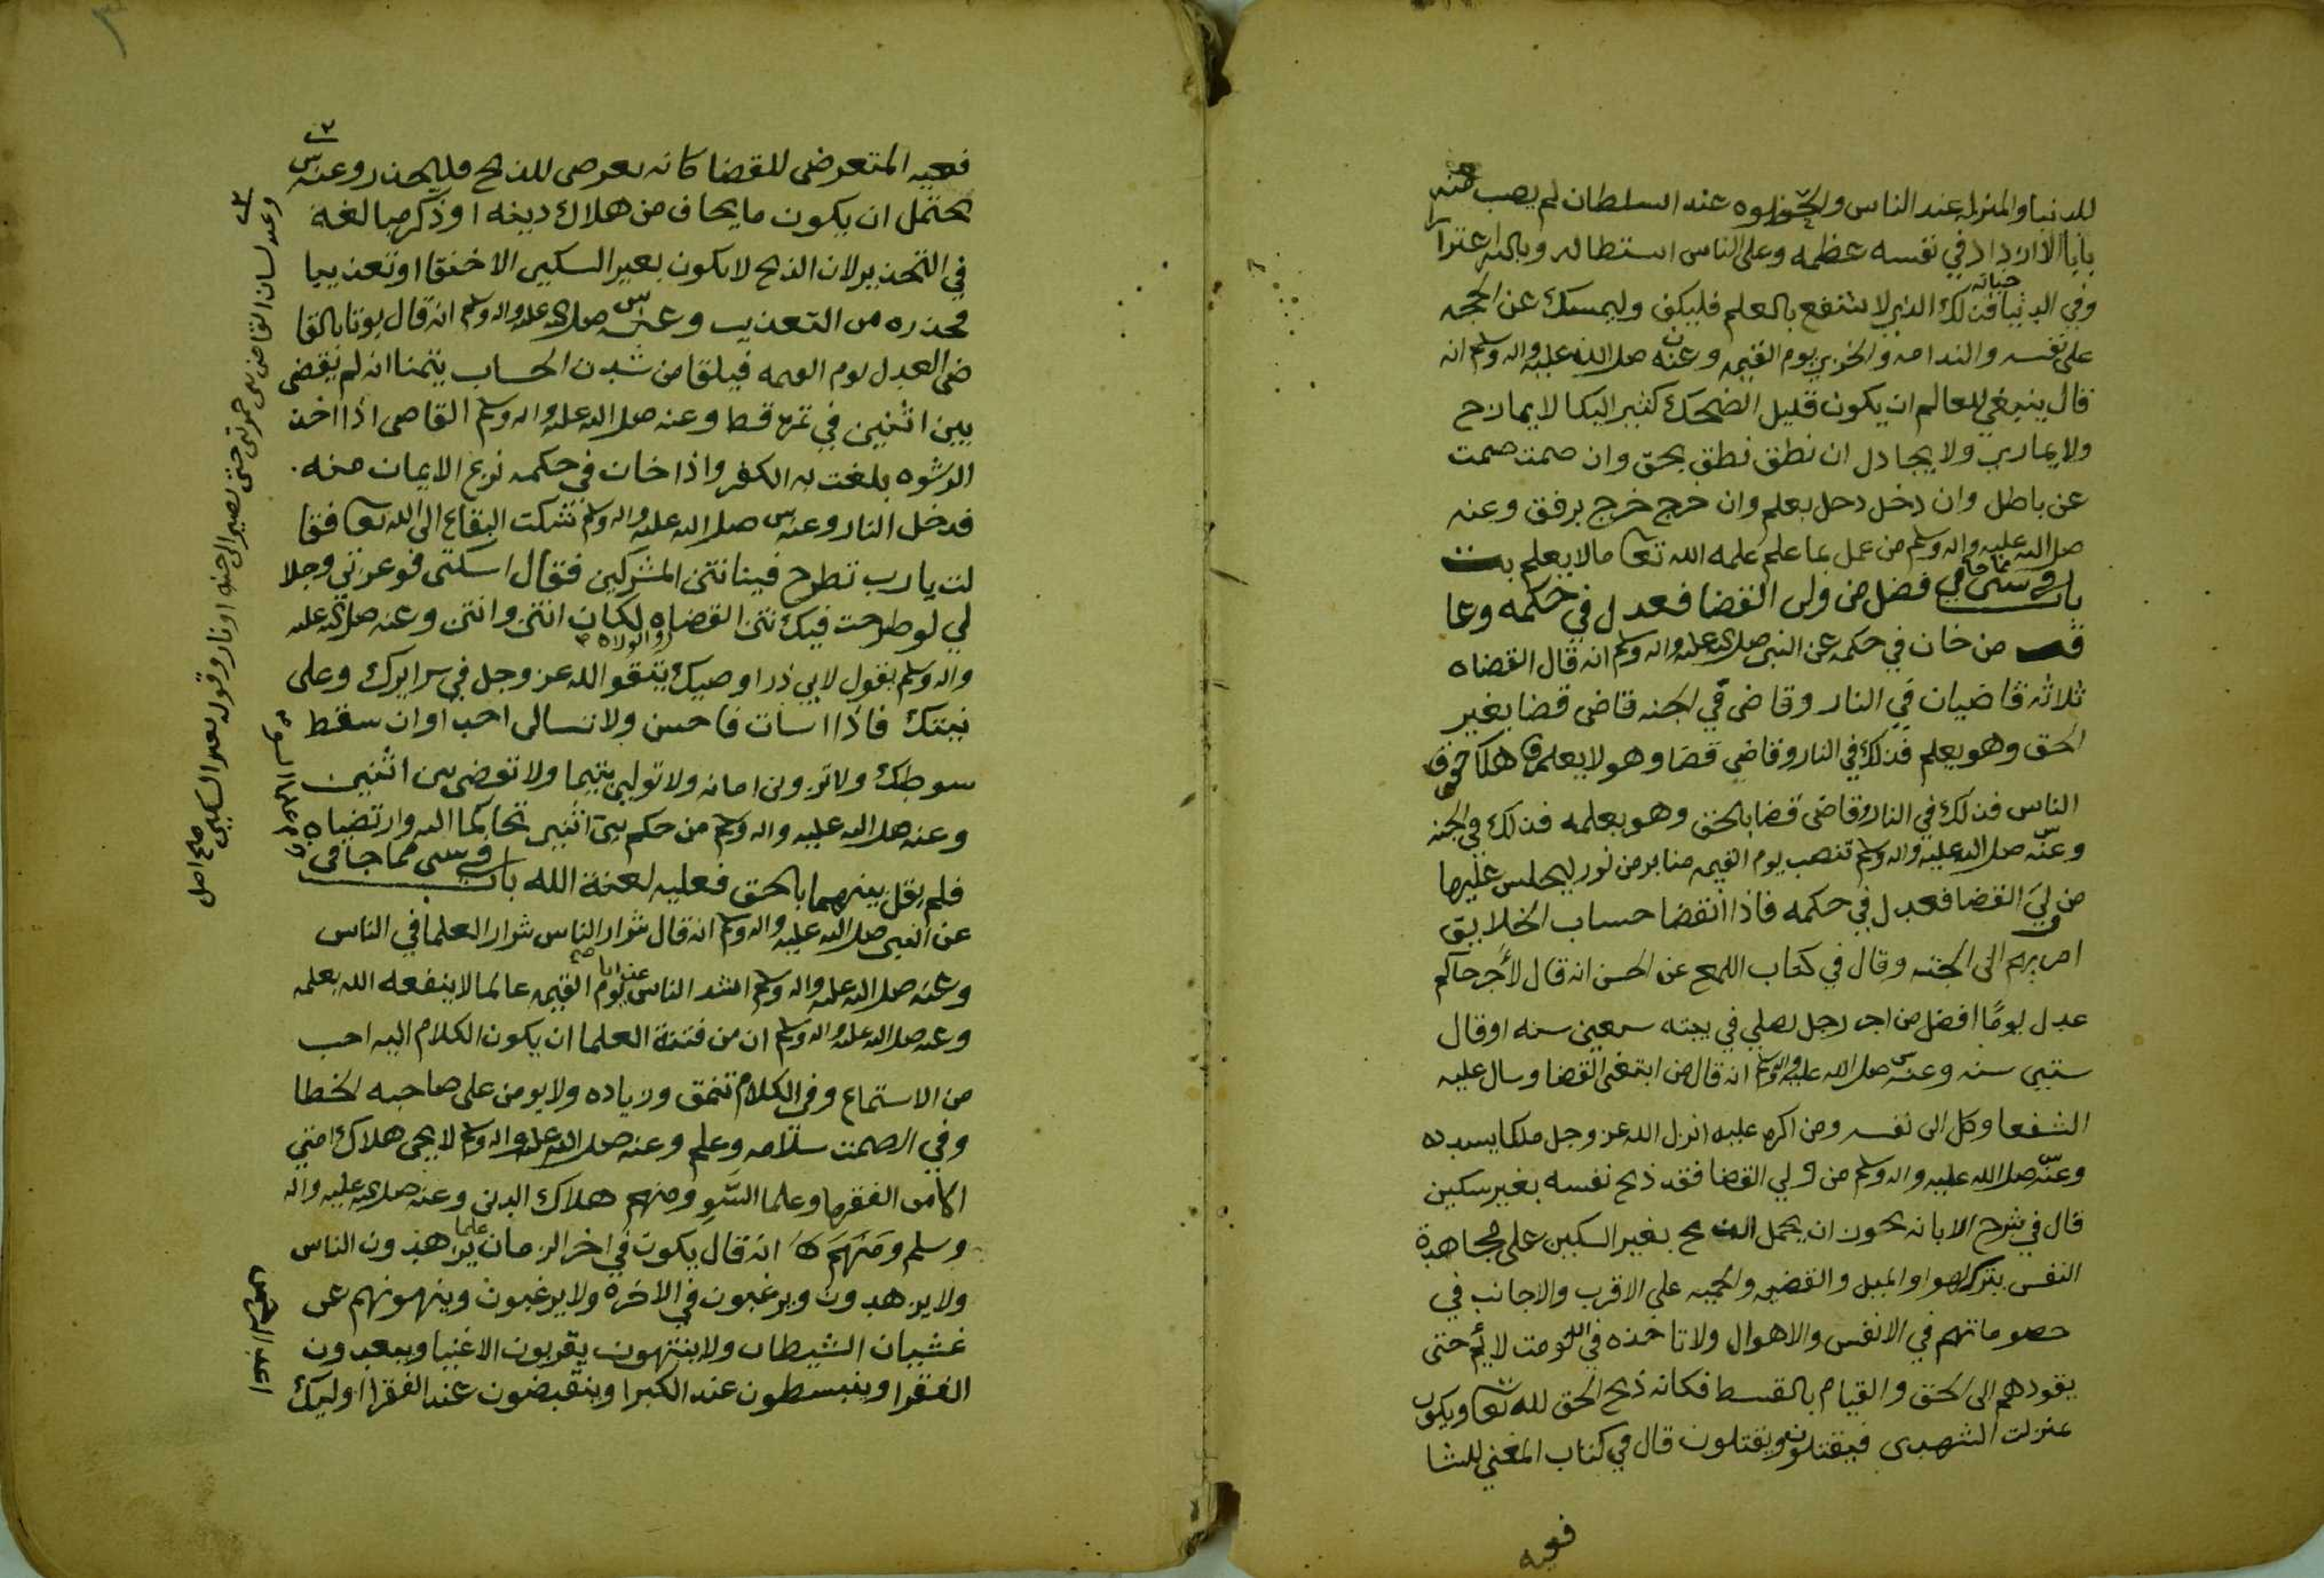 للدنيا والمنزله عند الناس والحضوه عند السلطان لم يصب منه
بابا الا ازداد في نفسه عظمه وعلى الناس استطاله وبالله اغترارا
وفي الدنيا فذلك الذي لا ينتفع بالعلم فليكف وليمسك عن الحجه
على نفسه والندامه والخزي يوم القيمه وعنه صلى الله عليه واله وسلم انه
قال ينبغي للعالم ان يكون قليل الضحك كثير البكا لا يمازح
ولا يماري ولا يجادل ان نطق نطق بحق وان صمت صمت
عن باطل وان دخل دخل بعلم وان خرج خرج برفق وعنه
صلى الله عليه واله وسلم من عمل بما علم علمه الله تعا مالا يعلم
باب في شي مما جا في فضل من ولي القضا فعدل في حكمه وعا
قب من خان في حكمه عن النبي صلى الله عليه واله وسلم انه قال القضاه
ثلاثه قاضيان في النار وقاضي في الجنه قاضي قضا بغير
الحق وهو يعلم فذلك في النار وقاضي قضا وهو لا يعلم فاهلك حقوق
الناس فذلك في النار وقاضي قضا بالحق وهو يعلمه فذلك في الجنه
وعنه صلى الله عليه واله وسلم تنصب يوم القيمه منابر من نور ليجلس عليها
من ولي القضا فعدل في حكمه فاذا انقضا حساب الخلايق
امر بهم الى الجنه وقال في كتاب اللمع عن الحسن انه قال لأجر حاكم
عدل يومًا افضل من اجر رجل يصلي في بيته سبعين سنه او قال
ستين سنه وعنه صلى الله عليه واله وسلم انه قال من ابتغى القضا وسال عليه
الشفعا وكل الى نفسه ومن اكره عليه انزل الله عز وجل ملكا يسدده
وعنه صلى الله عليه واله وسلم من ولي القضا فقد ذبح نفسه بغير سكين
قال في شرح الابانه يجوز ان يحمل الذبح بغير السكين على مجاهدة
النفس بترك الهوا والميل والقضيه والحميه على الاقرب والاجانب في
خصوماتهم في الانفس والاموال ولا تاخذه في الله لومت لائم حتى
يقودهم الى الحق والقيام بالقسط فكانه ذبح الحق لله تعا ويكون
بمنزلت الشهدى فيقتلون ويقتلون قال في كتاب المغني للشا
فعيه
فعيه المتعرض للقضا كانه تعرض للذبح فليحذر وعنه
يحتمل ان يكون ما يخاف من هلاك دينه او ذكر مبالغة
في التحذير لان الذبح لا يكون بغير السكين الا خنقا او تعذيبا
فحذره من التعذيب وعنه صلى الله عليه واله وسلم انه قال يوتا بالقا
ضي العدل يوم القيمه فيلقا من شدت الحساب يتمنا انه لم يقضي
بين اثنين في تمره قط وعنه صلى الله عليه واله وسلم القاضي اذا اخذ
الرشوه بلغت به الكفر واذا خان في حكمه نزع الايمان منه
فدخل النار وعنه صلى الله عليه واله وسلم شكت البقاع الى الله تعا فقا
لت يارب تطرح فينا نتن المشركين فقال اسكتي فوعزتي وجلا
لي لو طرحت فيك نتن القضاه والولاه لكان انتن وانتن وعنه صلى الله عليه
واله وسلم يقول لابي ذر اوصيك بتقوا الله عز وجل في سرايرك وعلى
نيتك فاذا اسات فاحسن ولا تسالن احدا وان سقط
سوطك ولا تزوين امانه ولا تولين يتيما ولا تقضي بين اثنين
وعنه صلى الله عليه واله وسلم من حكم بين اثنين تحاكما اليه وارتضياه
فلم يقل بينهما بالحق فعليه لعنة الله باب في شي مما جا في
عن النبي صلى الله عليه واله وسلم انه قال شرار الناس شرار العلما في الناس
وعنه صلى الله عليه واله وسلم اشد الناس عذابا يوم القيمه عالما لا ينفعه الله بعلمه
وعنه صلى الله عليه واله وسلم ان من فتنة العلما ان يكون الكلام اليه احب
من الاستماع وفي الكلام تنمق وزياده ولا يومن على صاحبه الخطا
وفي الصمت سلامه وعلم وعنه صلى الله عليه واله وسلم لا يجي هلاك امتي
الا من الفقها وعلما السو ومنهم هلاك الدين وعنه صلى الله عليه واله
وسلم انه قال يكون في اخر الزمان علما يزهدون الناس
ولا يزهدون ويرغبون في الاخره ولا يرغبون وينهونهم عن
غشيان الشيطان ولا ينتهون يقربون الاغنيا ويبعدون
الفقرا وينبسطون عند الكبرا وينقبضون عند الفقرا اوليك
وعنه لسان القاضي بين جمرتين حتى يصير الى جنه او نار وقوله بغير السكين
صح اصل